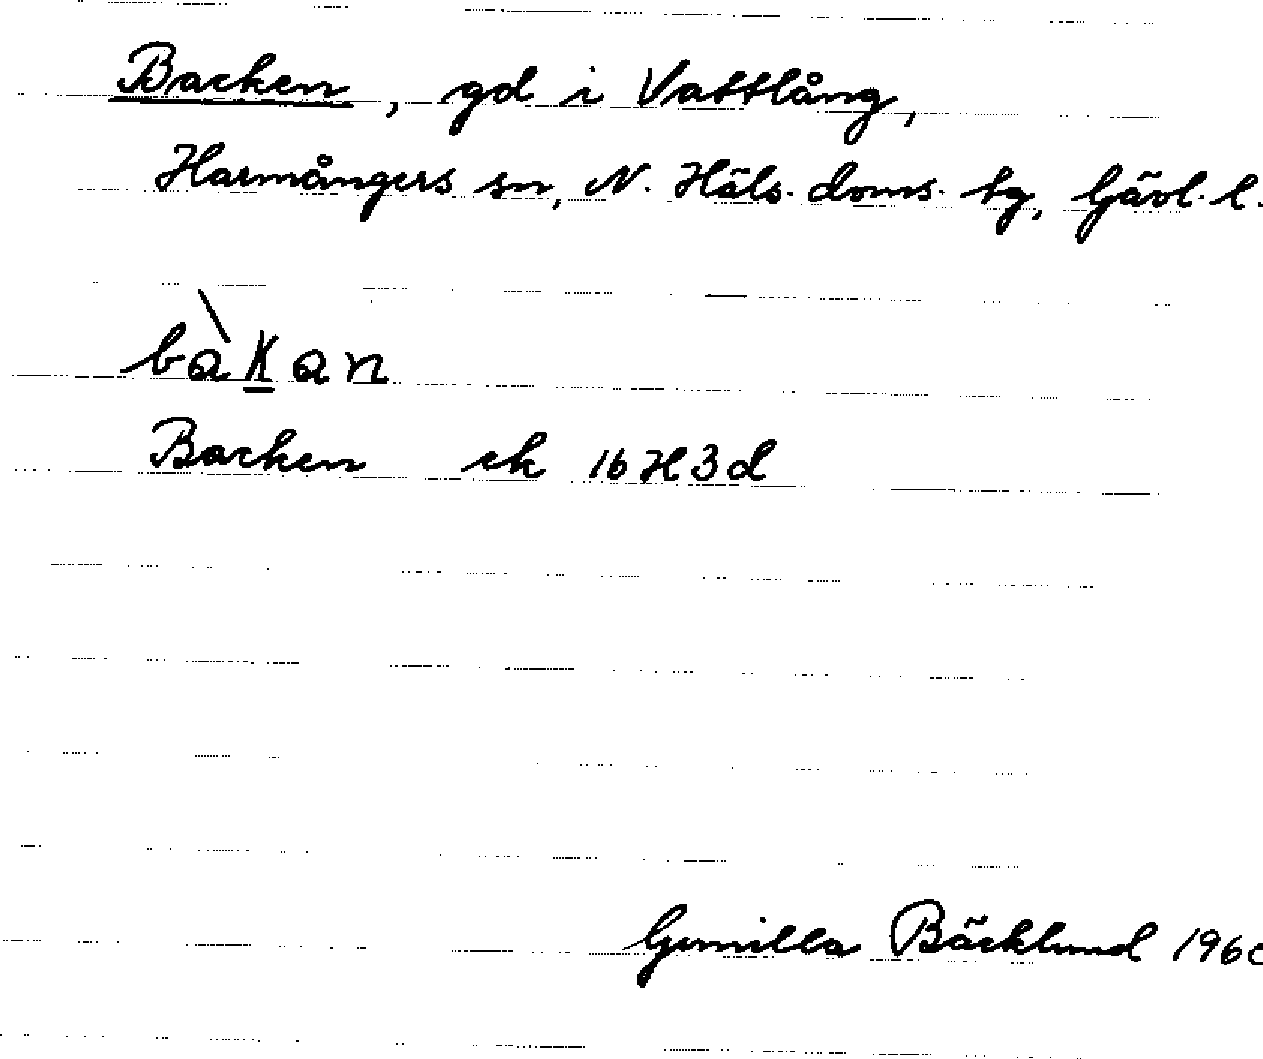 Backen, gd i Vattlång,
Harmångers sn, N. Häls. doms. tg, Gävl. l.
bàkan
Backen ek 16H3d
Gunilla Bäcklund 196